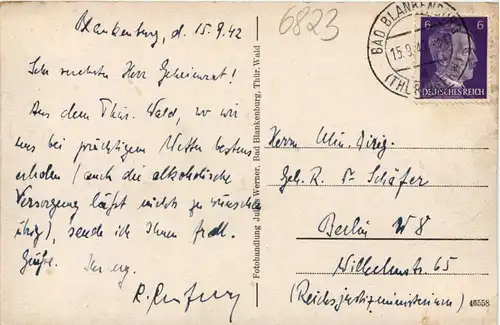 Blankenburg, d. 15.9.42
Sehr verehrter Herr Geheimrat!
Aus dem Thür. Wald, wo wir
uns bei prächtigem Wetter bestens
erholen (auch die alkoholische
Versorgung läßt nichts zu wünschen
übrig), sende ich Ihnen frdl.
Grüße.
Ihr erg.
6823
BAD BLANKENBURG
15.9.
(THÜR
6 6
DEUTSCHES REICH
Fotohandlung Werner, Bad Blankenburg, Thür. Wald
Herrn Min. Dirig.
Geh. R. Dr Schäfer
Berlin W8
Wilhelmstr. 65
(Reichsjustizministerium)
46558